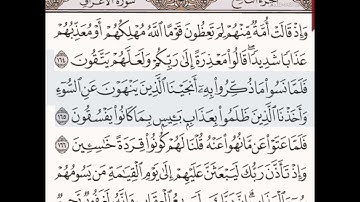 سورة الأعراف
الجزء التاسع
وَإِذْ قَالَتْ أُمَّةٌ مِّنْهُمْ لِمَ تَعِظُونَ قَوْمًا ٱللَّهُ مُهْلِكُهُمْ أَوْ مُعَذِّبُهُمْ
عَذَابًا شَدِيدًا ۖ قَالُوا۟ مَعْذِرَةً إِلَىٰ رَبِّكُمْ وَلَعَلَّهُمْ يَتَّقُونَ ١٦٤
فَلَمَّا نَسُوا۟ مَا ذُكِّرُوا۟ بِهِۦٓ أَنجَيْنَا ٱلَّذِينَ يَنْهَوْنَ عَنِ ٱلسُّوٓءِ
وَأَخَذْنَا ٱلَّذِينَ ظَلَمُوا۟ بِعَذَابٍۭ بَـِٔيسٍۭ بِمَا كَانُوا۟ يَفْسُقُونَ ١٦٥
فَلَمَّا عَتَوْا۟ عَن مَّا نُهُوا۟ عَنْهُ قُلْنَا لَهُمْ كُونُوا۟ قِرَدَةً خَـٰسِـِٔينَ ١٦٦
وَإِذْ تَأَذَّنَ رَبُّكَ لَيَبْعَثَنَّ عَلَيْهِمْ إِلَىٰ يَوْمِ ٱلْقِيَـٰمَةِ مَن يَسُومُهُمْ